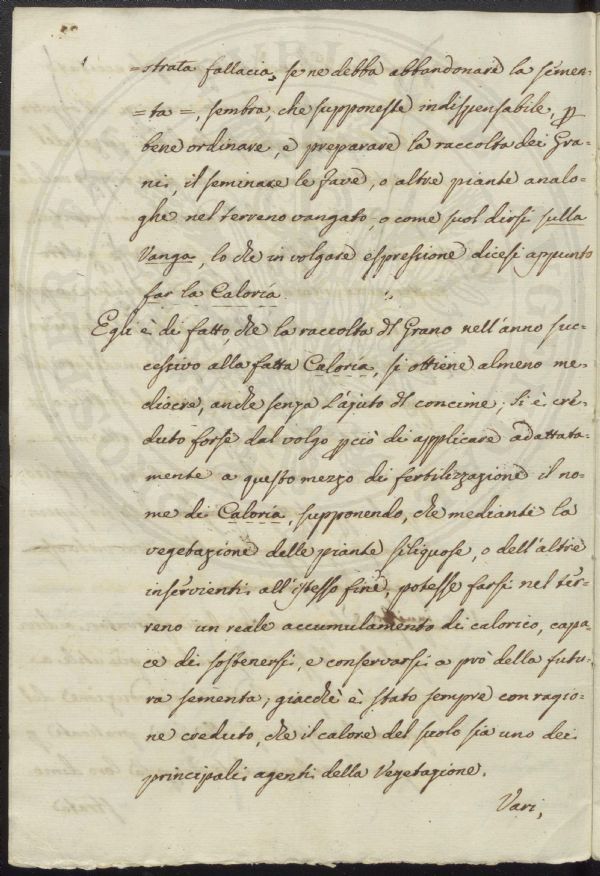 =strata fallacia, se ne debba abbandonare la semen-
=ta=, sembra, che supponeste indispensabile, p
bene ordinare, e preparare la raccolta dei Gra-
ni, il seminare le fave, o altre piante analo-
ghe nel terreno vangato, o come suol dirsi sulla
Vanga, lo che in volgare espressione dicesi appunto
far la Caloría.
Egli è di fatto, che la raccolta dl Grano nell'anno suc-
cessivo alla fatta Caloría, si ottiene almeno me-
diocre, anche senza l'ajuto dl concime; Si è cre-
duto forse dal volgo pciò di applicare adattata-
mente a questo mezzo di fertilizzazione il no-
me di Caloría, supponendo, che mediante la
vegetazione delle piante siliquose, o dell'altre
inservienti all'istesso fine, potesse farsi nel ter-
reno un reale accumulamento di calorico, capa-
ce di sostenersi, e conservarsi a prò della futu-
ra sementa; giacchè è stato sempre con ragio-
ne creduto, che il calore del suolo sia uno dei
principali agenti della Vegetazione.
Vari,